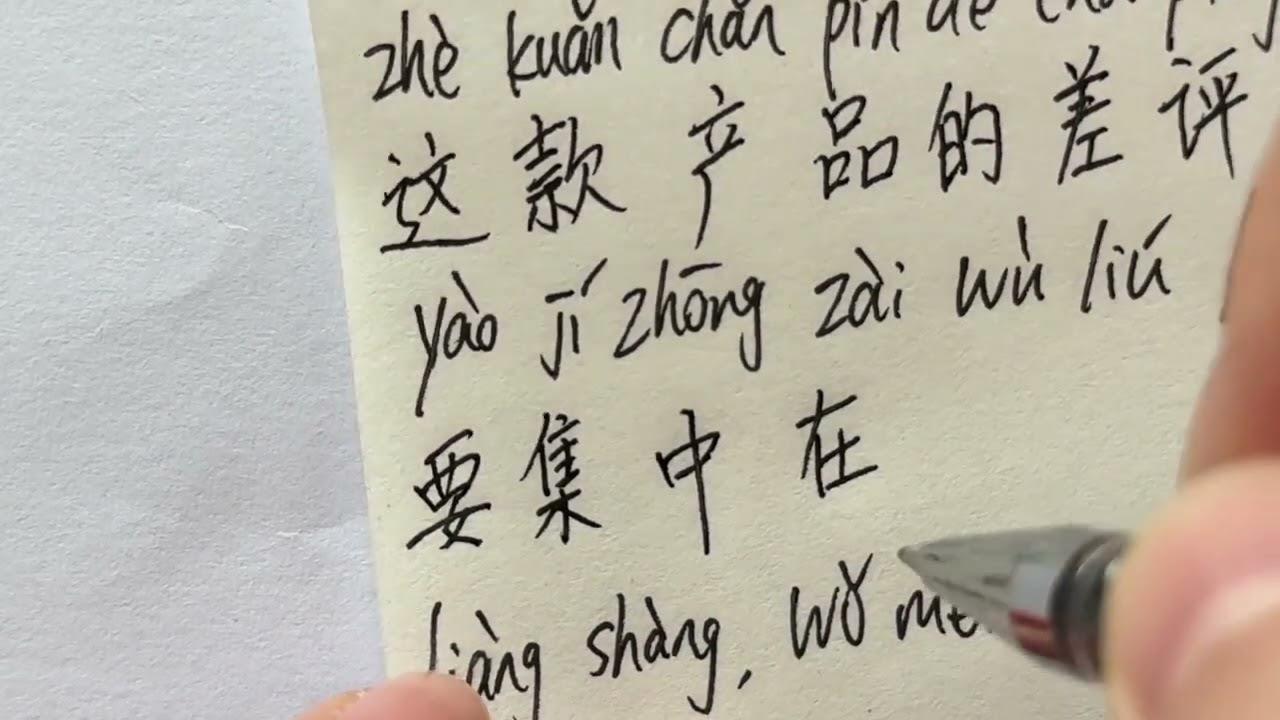 zhè kuǎn chǎn pǐn de
这款产品的差评
yào jí zhōng zài wù liú
要集中在
liàng shàng, wǒ